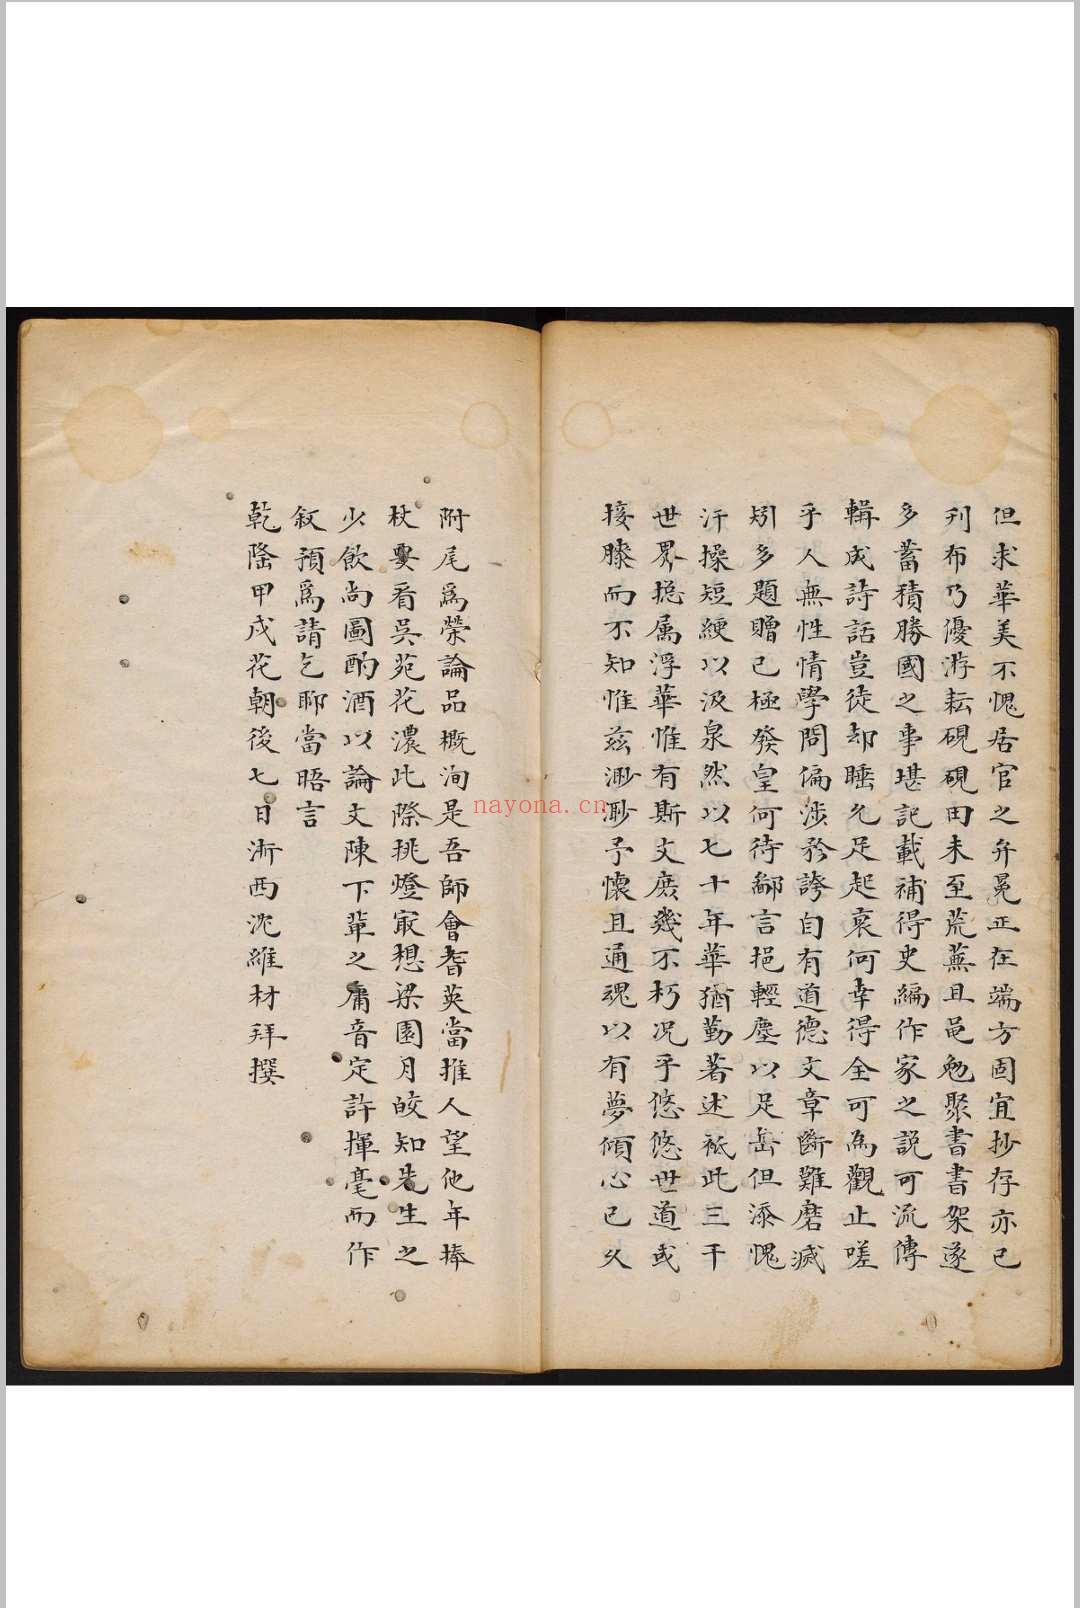 但求華美不愧居官之弁冕正在端方固宜抄存亦已
刋布乃優游耘硯硯田未至荒蕪且黽勉聚書書架遂
多蓄積勝國之事堪記載補得史編作家之説可流傳
輯成詩話豈徒却睡允足起衰何幸得全可為觀止嗟
乎人無性情學問偏涉矜誇自有道德文章斷難磨滅
矧多題贈已極發皇何待鄙言挹輕塵以足岳但添愧
汗操短綆以汲泉然以七十年華猶勤著述袛此三千
世界揔属浮華惟有斯文庶幾不朽况乎悠悠世道或
接膝而不知惟兹渺渺予懷且通魂以有夢傾心已乆
附尾爲榮論品概洵是吾師會耆英當推人望他年捧
杖要看吳苑花濃此際挑燈㝡想梁園月皎知先生之
少飲尚圖酌酒以論文陳下軰之庸音定許揮毫而作
叙預爲請乞聊當晤言
乾隆甲戌花朝後七日浙西沈維材拜撰
nayona.cn